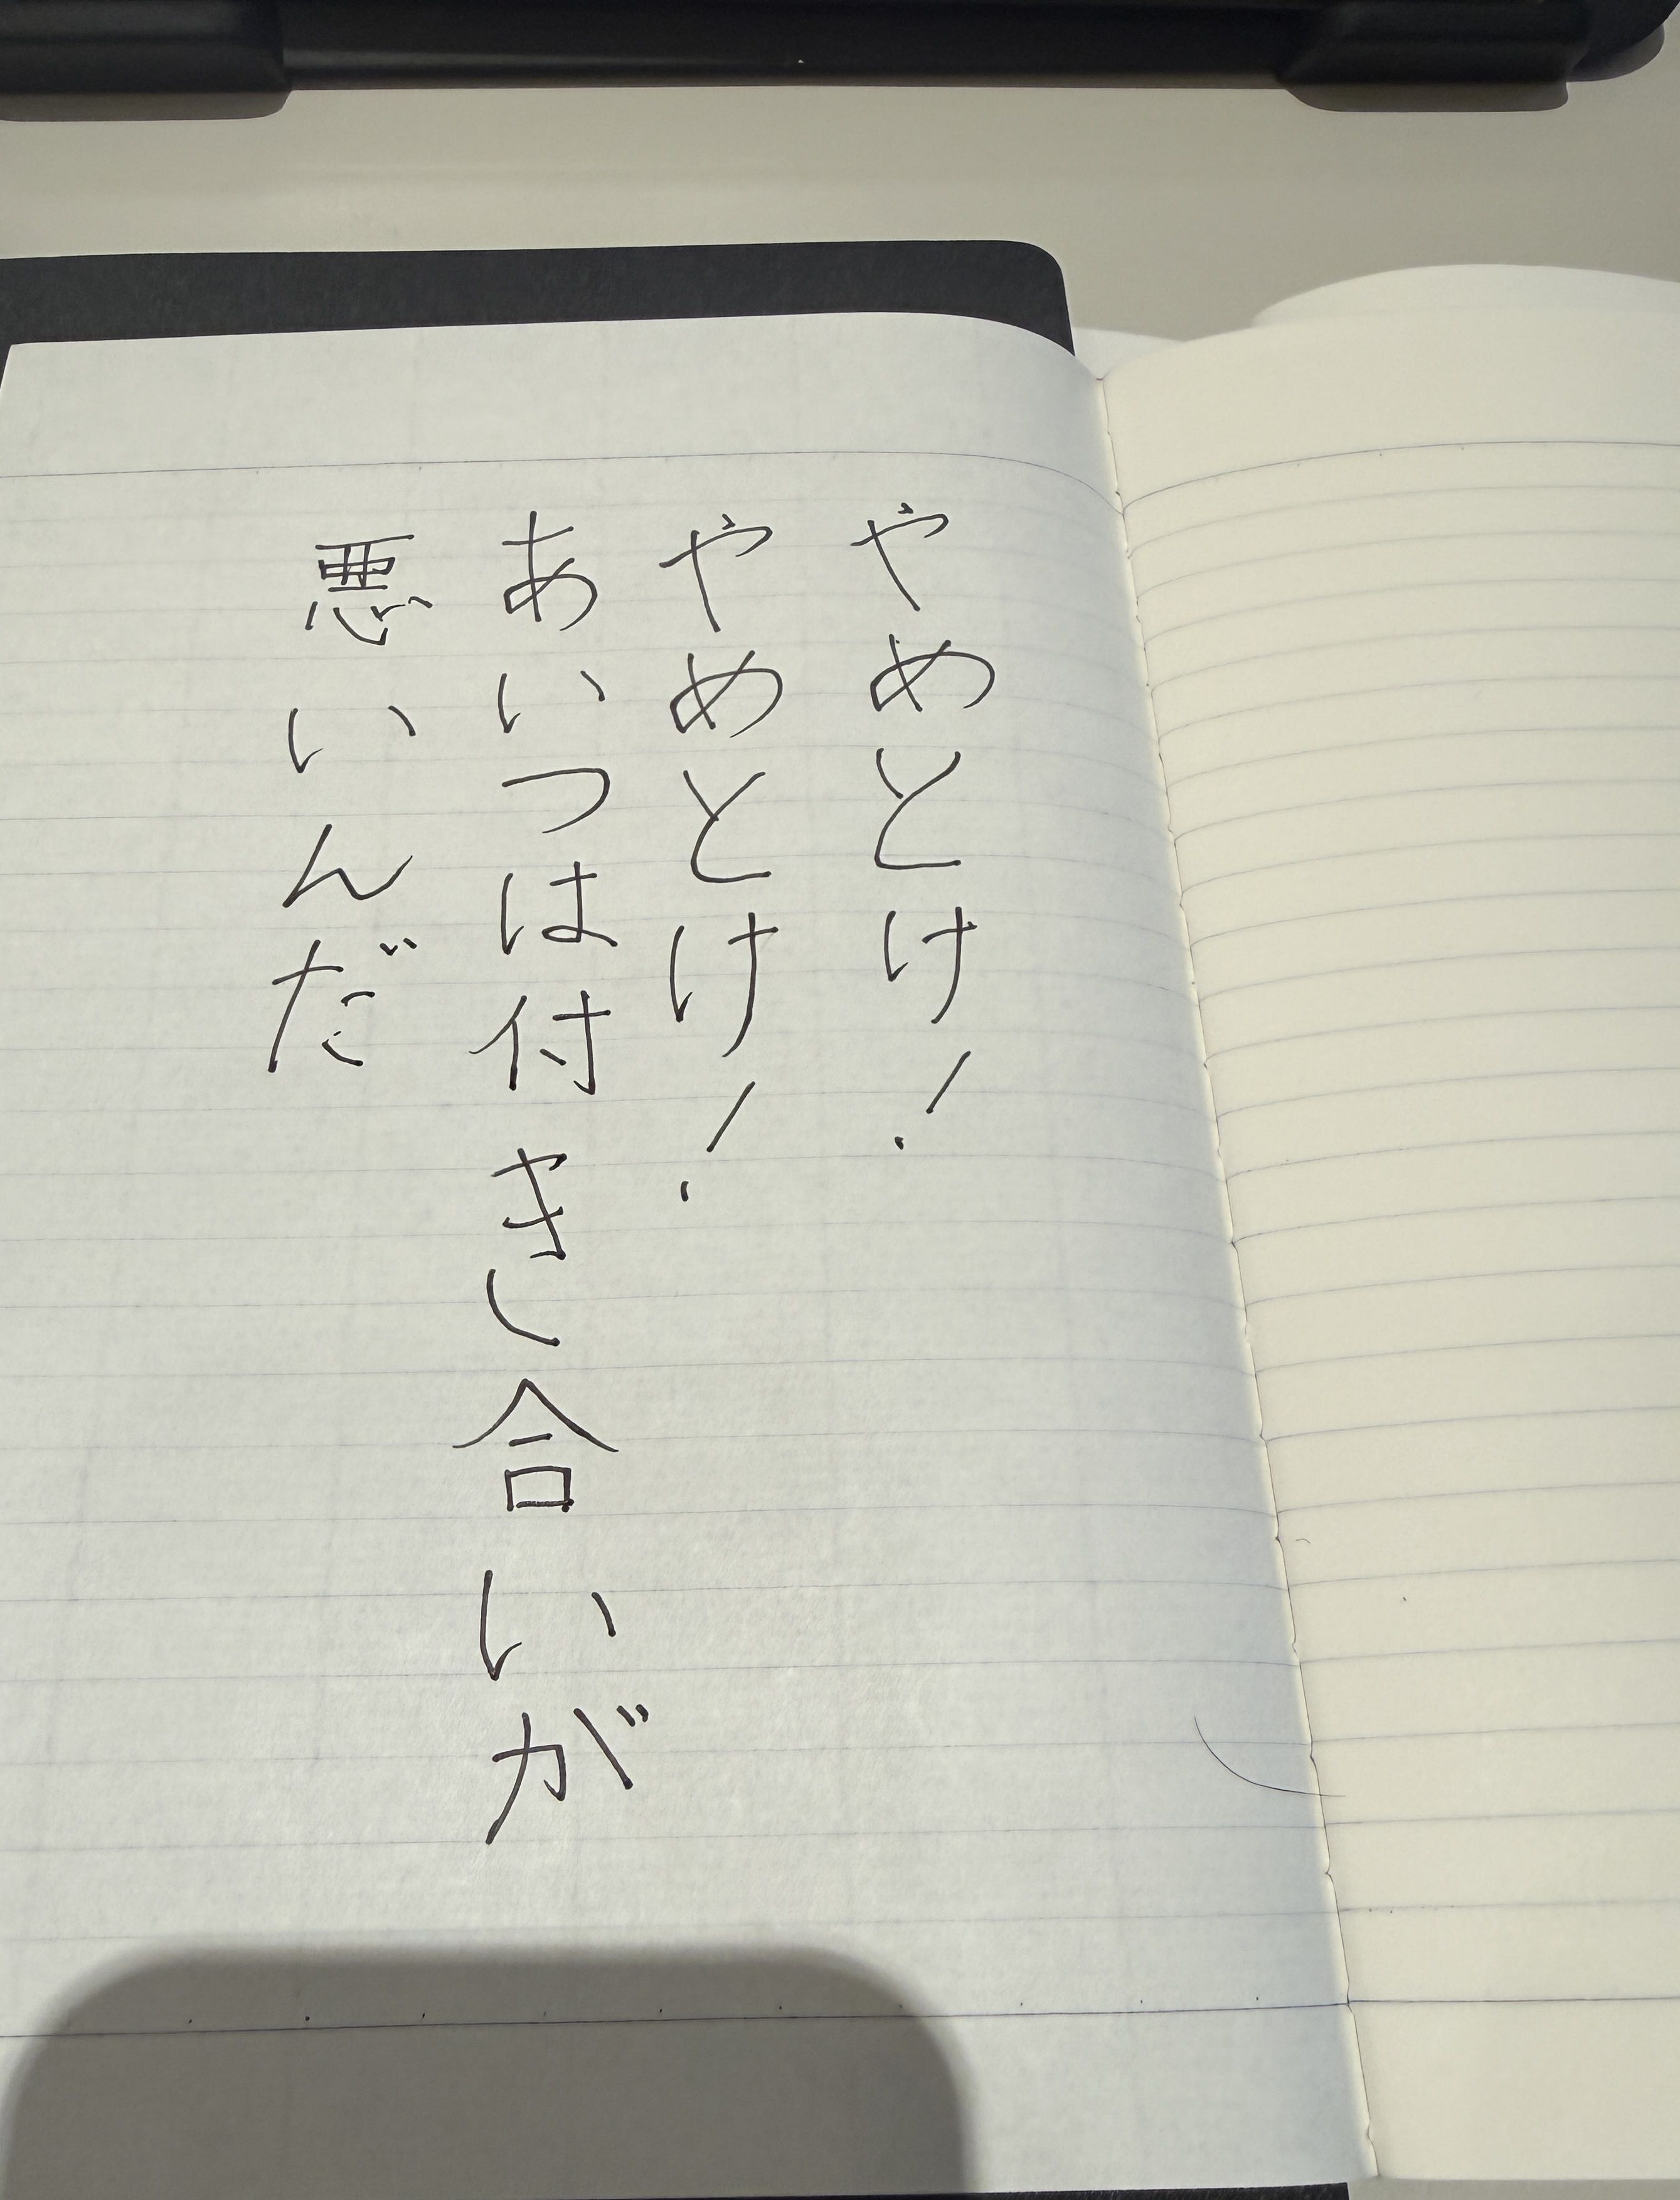 やめとけ!
やめとけ!
あいつは付き合いが
悪いんだ